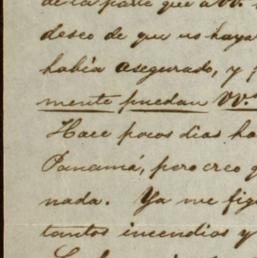 de la parte que a VV.
deseo de que no haya
habia asegurado, y
mente puedan VV.
Hace pocos dias
Panamá, pero creo q
nada. Ya me fig
tantos incendios y